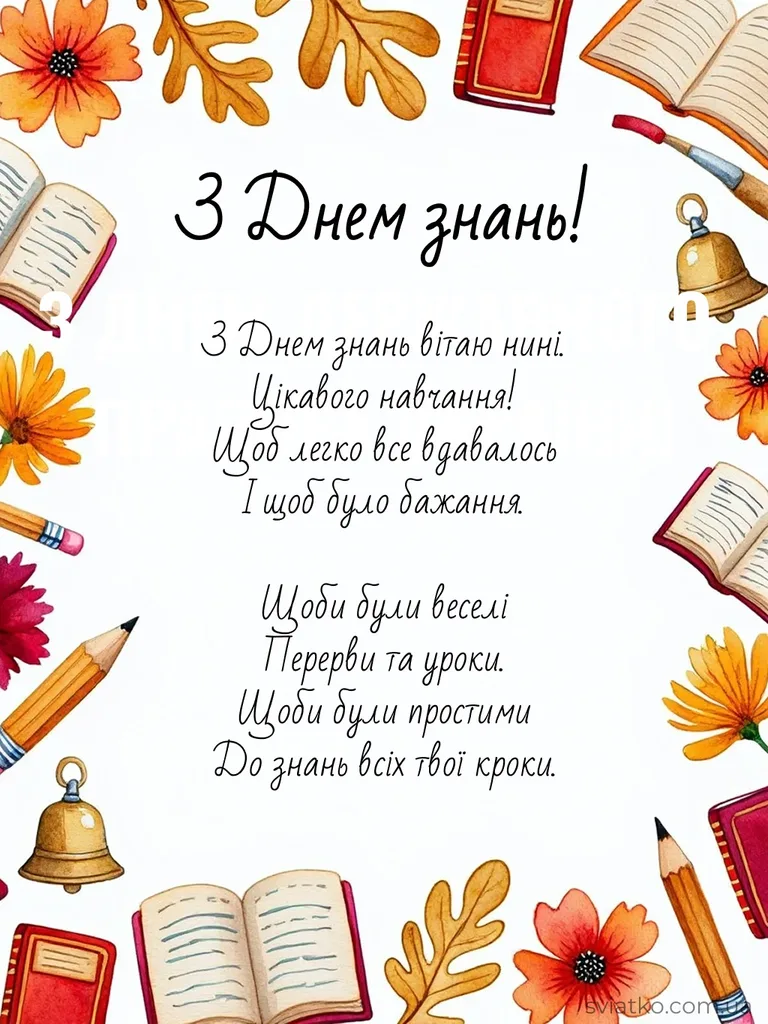 З Днем знань!
З Днем знань вітаю нині.
Цікавого навчання!
Щоб легко все вдавалось
І щоб було бажання.
Щоби були веселі
Перерви та уроки.
Щоби були простими
До знань всіх твої кроки.
sviatko.com.ua